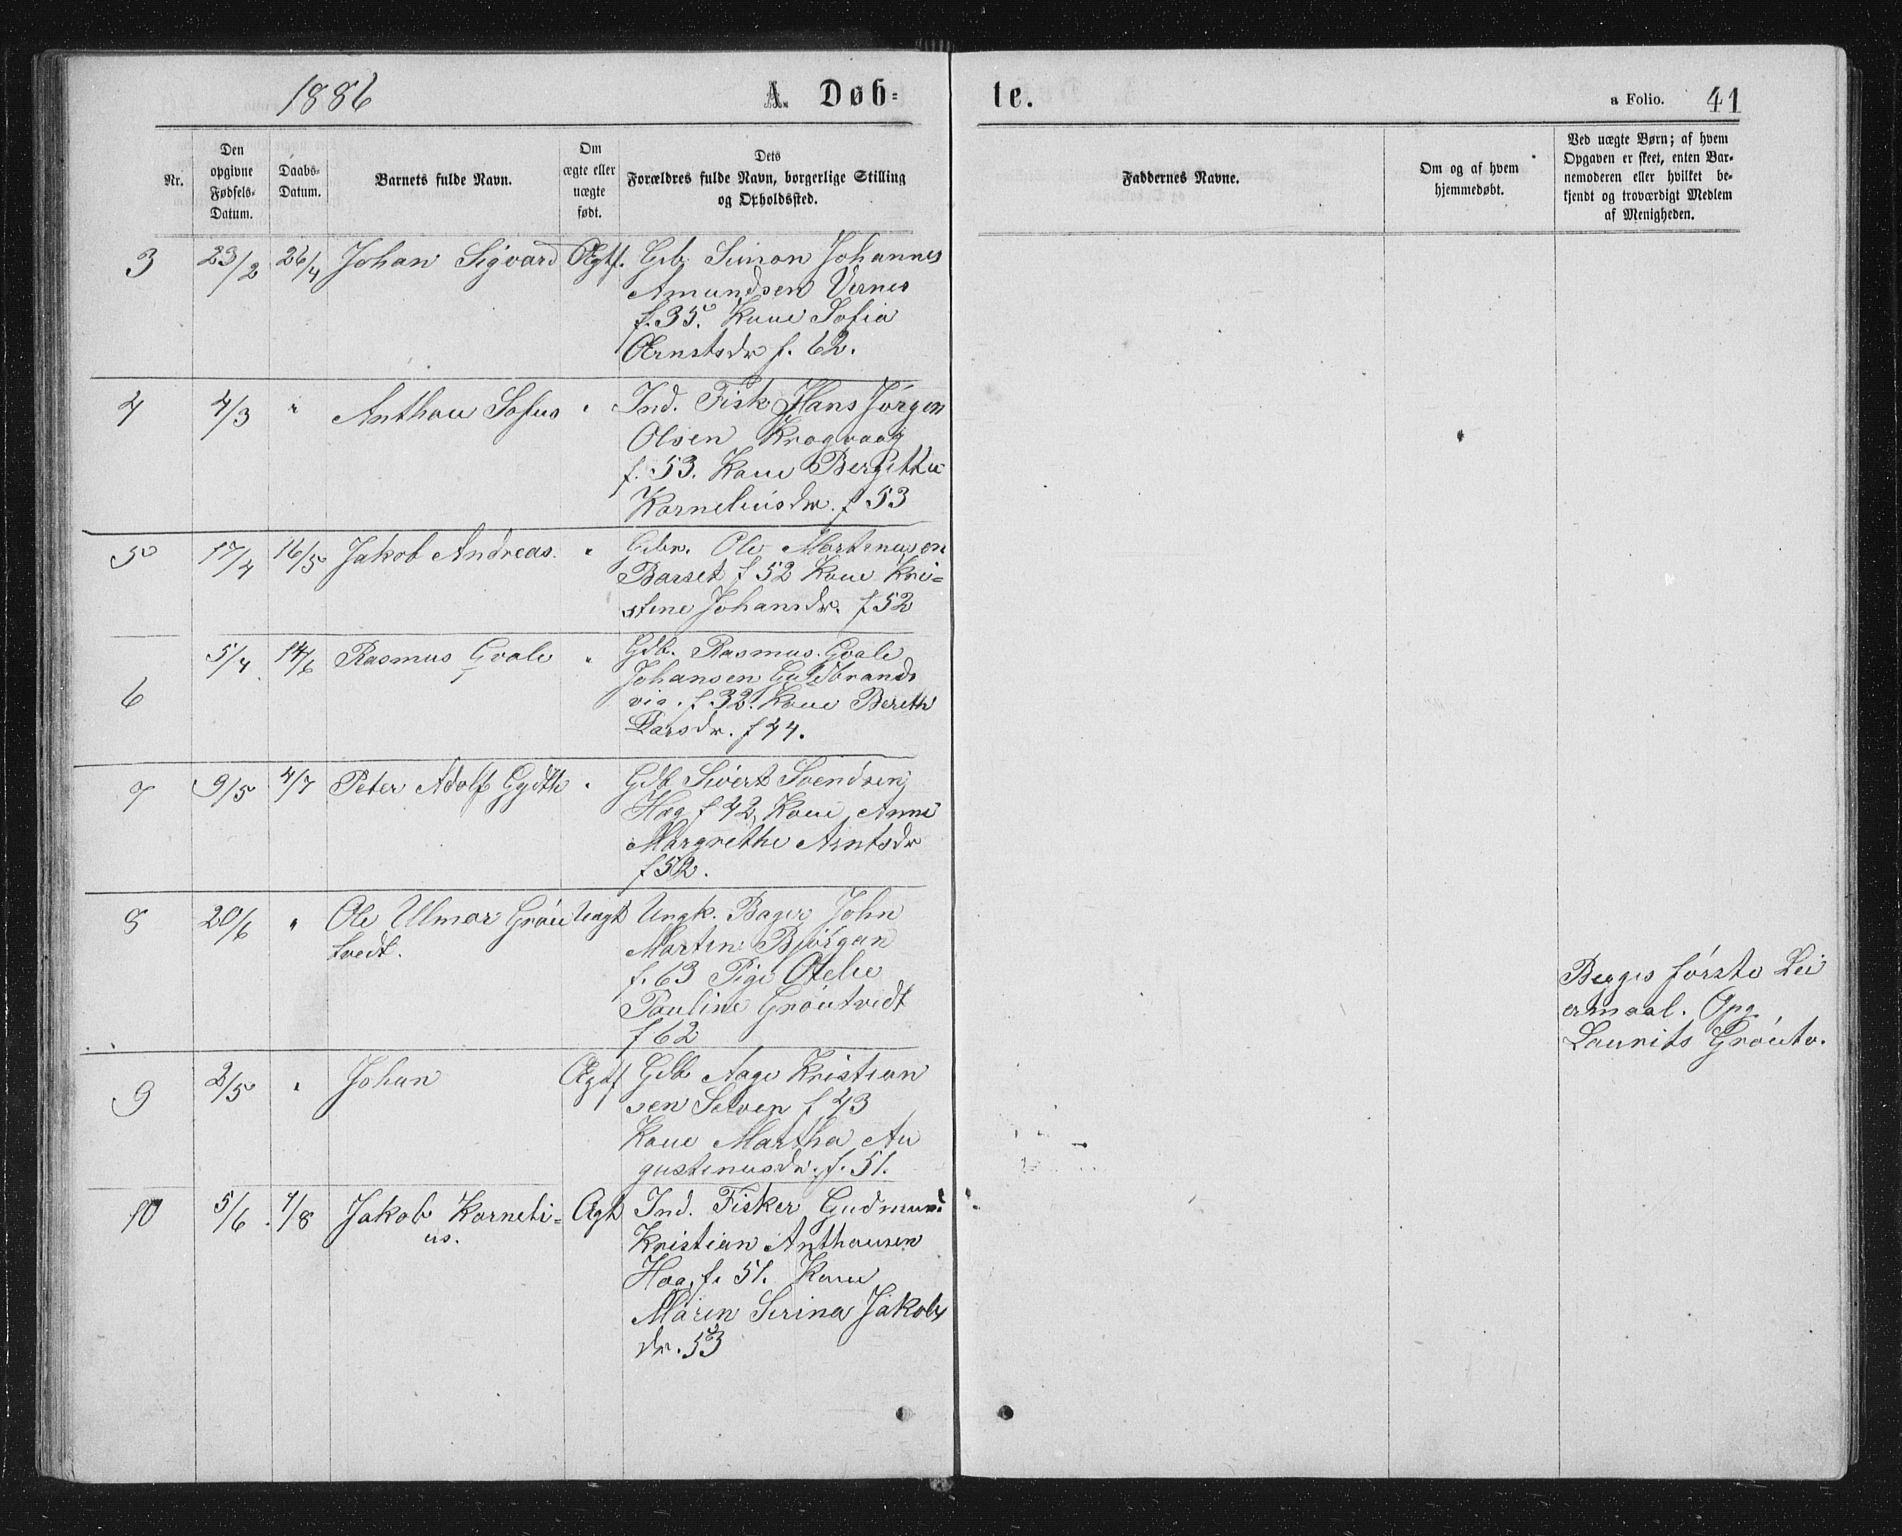 1886
A. Døb-
te.
a Folio. 41
Nr.
Den
opgivne
Fødsels-
Datum.
Daabs-
Datum.
Barnets fulde Navn.
Om
ægte eller
uægte
født.
Dets
Forældres fulde Navn, borgerlige Stilling
og Opholdssted.
Faddernes Navne.
Om og af hvem
hjemmedøbt.
Ved uægte Børn; af hvem
Opgaven er skeet, enten Bar-
nemoderen eller hvilket be-
kjendt og troværdigt Medlem
af Menigheden.
3 23/2 26/4 Johan Sigvard Ægtf. Gb. Simon Johannes
Amundsen Vernes
f. 35. Kone Sofia
Ernstsdr f. 62.
4 4/3 " Anthon Sofus " Ind. Fisk Hans Jørgen
Olsen Krogvaag
f. 53. Kone Bergitha
Korneliusdr. f 53
5 17/4 16/5 Jakob Andreas. " Gbr. Ole Martinuson
Barset f 52 Kone Kri-
stine Johansdr. f 52
6 5/4 14/6 Rasmus Gvale " Gdb. Rasmus Gvale
Johansen Guldbrands
vig. f. 32. Kone Bereth
Larsdr. f 44.
7 9/5 4/7 Peter Adolf Gydth " Gdb Sivert Svendsen
Hag f 42, Kone Anne
Margrethe Arntsdr
f 52.
8 20/6 " Ole Ulmar Grøn Uægt Ungk. Bager John
tvedt. Martin Bjørgan
f. 63 Pige Otelie
Pauline Grøntvedt
f 62
Begges første Lei
ermaal. Opg.
Laurits Grøntv.
9 2/5 " Johan Ægtf Gdb Aage Kristian
sen Selven f 43
Kone Martha Au
gustinusdr. f. 51.
10 5/6 1/8 Jakob Korneli- Ægt Ind. Fisker Gudmun
us. Kristian Anthonsen
Hag, f. 51. Kone
Maren Serina Jakobs
dr. 53